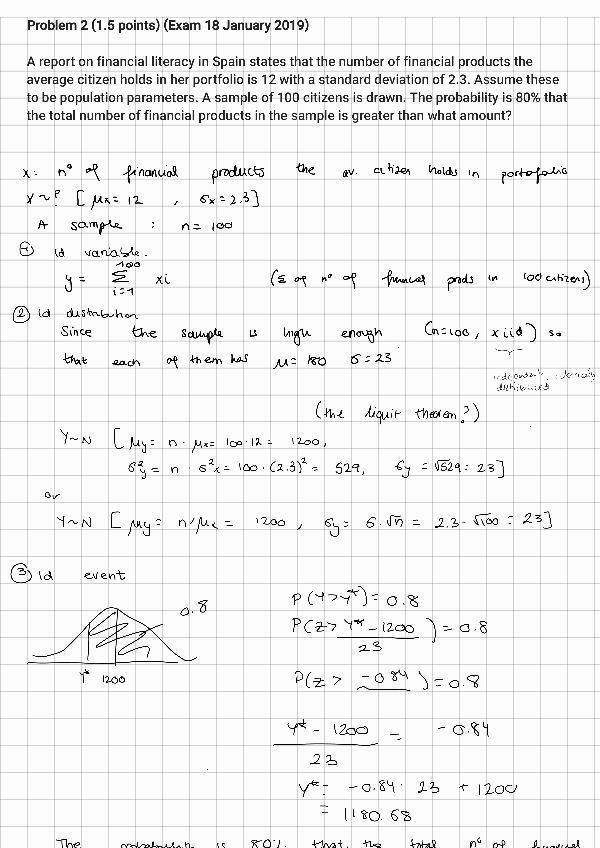 Problem 2 (1.5 points) (Exam 18 January 2019)
A report on financial literacy in Spain states that the number of financial products the
average citizen holds in her portfolio is 12 with a standard deviation of 2.3. Assume these
to be population parameters. A sample of 100 citizens is drawn. The probability is 80% that
the total number of financial products in the sample is greater than what amount?
x: nº of financial products the av. citizen holds in portofolio
X ~ ? [ μx = 12 , σx = 2.3 ]
A sample : n = 100
① Id variable.
y = Σ xi (Σ of nº of financial prods in 100 citizens)
100
i=1
② Id distribution
Since the sample is high enough (n=100, x iid) so
that each of them has μ = 180 σ = 23
distributed
(the liquit theorem?)
Y~N [ μy = n · μx = 100·12 = 1200,
σ²y = n · σ²x = 100 · (2.3)² = 529, σy = √529 = 23 ]
or
Y~N [ μy = n·μx = 1200 , σy = σ·√n = 2.3 · √100 = 23 ]
③ Id event
0.8
Y* 1200
P(Y>Y*) = 0.8
P(Z> Y* - 1200 ) = 0.8
23
P(Z > -0.84 ) = 0.8
Y* - 1200 = -0.84
23
Y* = -0.84 · 23 + 1200
= 1180.68
The probability is 80% that the total nº of financial